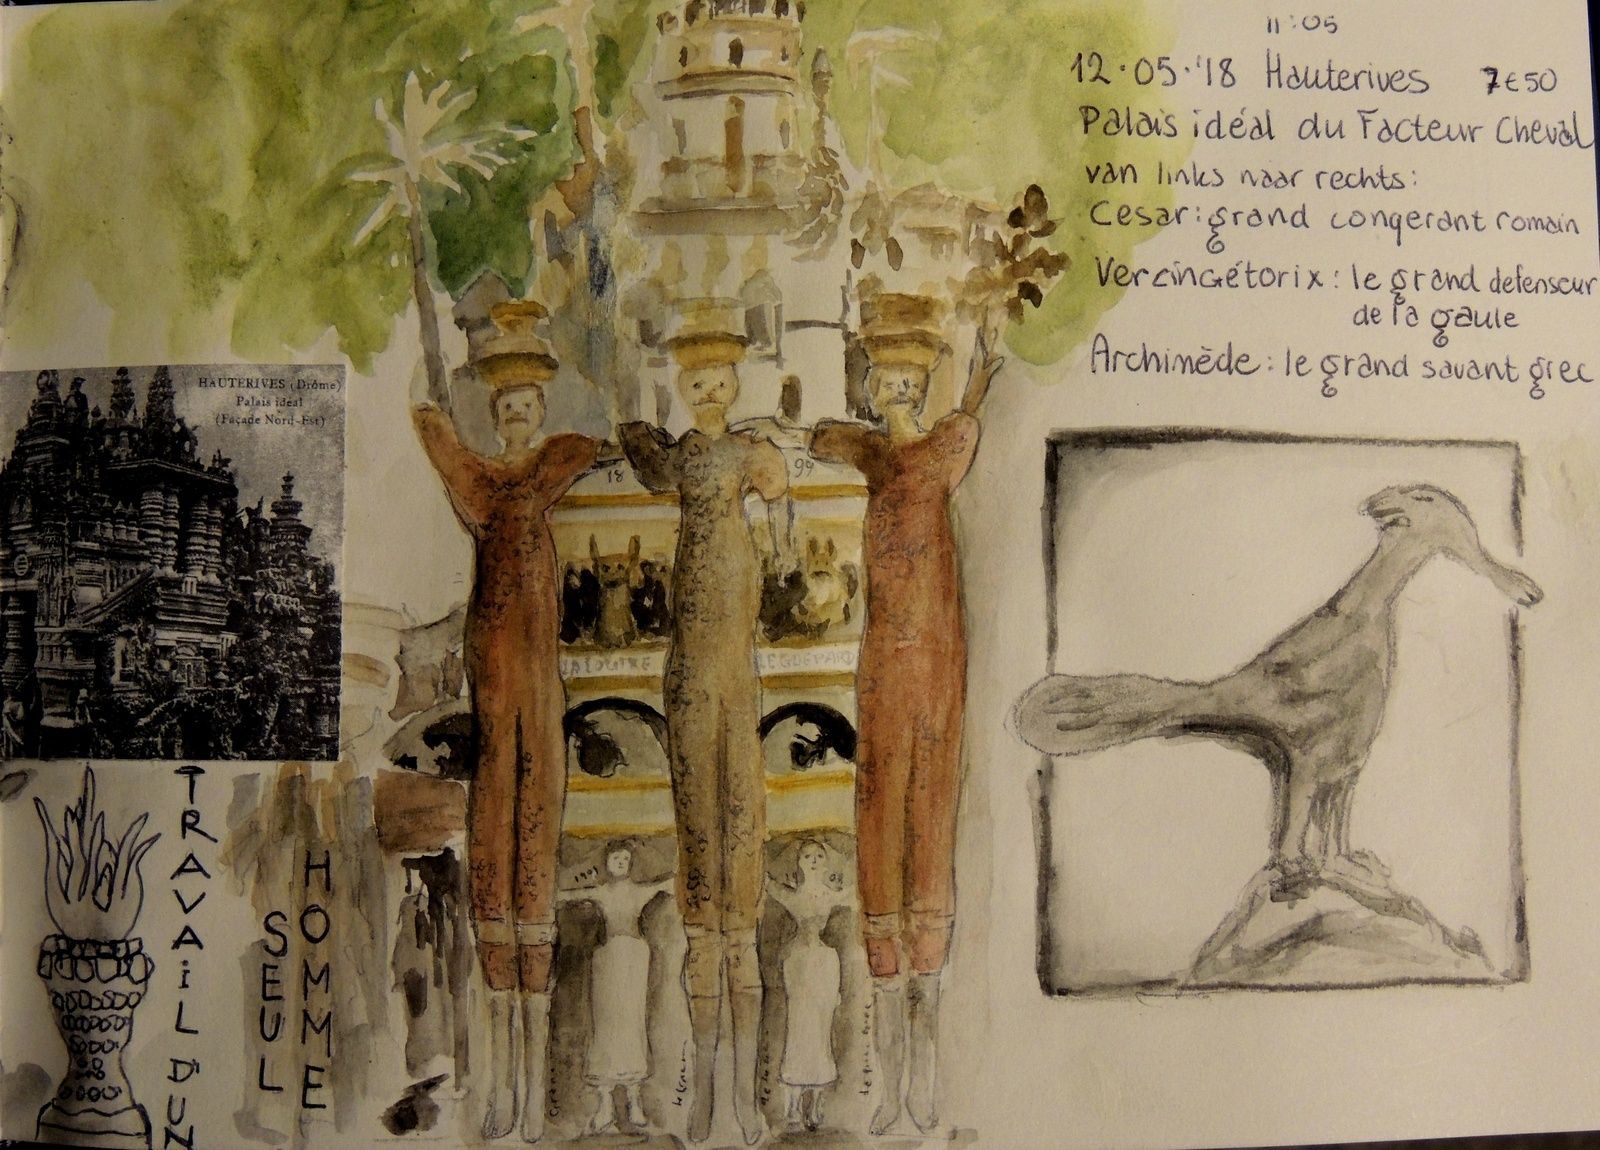 11:05
12.05.'18 Hauterives 7€50
Palais idéal du Facteur Cheval
van links naar rechts:
Cesar: grand conqerant romain
Vercingétorix: le grand defenseur
de la gaule
Archimède: le grand savant grec
HAUTERIVES (Drôme)
Palais idéal
(Façade Nord-Est)
18 99
LEGUEPARD
1901
TRAVAIL D'UN
SEUL
HOMME